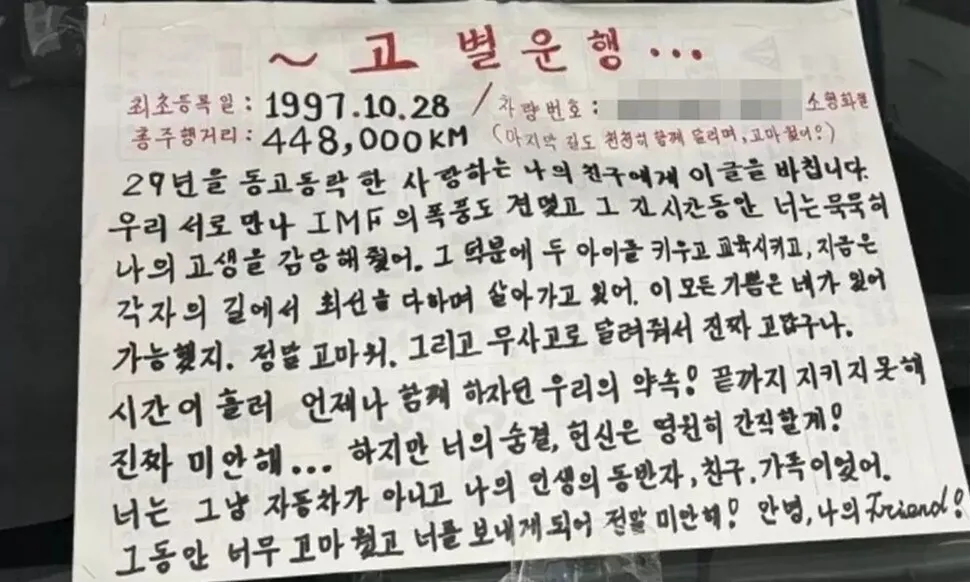 ~ 고 별 운 행 ...
최초등록일: 1997.10.28 / 차량번호: 소형화물
총주행거리: 448,000KM (마지막 길도 천천히 함께 달리며, 고마웠어!)
29년을 동고동락 한 사랑하는 나의 친구에게 이 글을 바칩니다.
우리 서로 만나 IMF의 폭풍도 견뎠고 그 긴 시간동안 너는 묵묵히
나의 고생을 감당해 줬어. 그 덕분에 두 아이를 키우고 교육시키고, 지금은
각자의 길에서 최선을 다하며 살아가고 있어. 이 모든 기쁨은 네가 있어
가능했지. 정말 고마워. 그리고 무사고로 달려줘서 진짜 고맙구나.
시간이 흘러 언제나 함께 하자던 우리의 약속! 끝까지 지키지 못해
진짜 미안해... 하지만 너의 숨결, 헌신은 영원히 간직할게!
너는 그냥 자동차가 아니고 나의 인생의 동반자, 친구, 가족이었어.
그동안 너무 고마웠고 너를 보내게 되어 정말 미안해! 안녕, 나의 Friend!